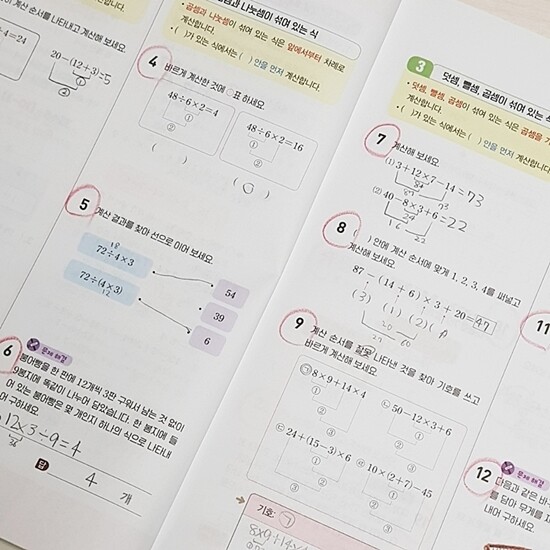 계산 순서를 나타내고 계산해 보세요.
=24
20-(12+3)=5
①
②
나눗셈이 섞여 있는 식
• 곱셈과 나눗셈이 섞여 있는 식은 앞에서부터 차례로
계산합니다.
• ( )가 있는 식에서는 ( ) 안을 먼저 계산합니다.
4
바르게 계산한 것에 ○표 하세요.
48÷6×2=4
①
②
( )
48÷6×2=16
①
②
( ○ )
5
계산 결과를 찾아 선으로 이어 보세요.
18
72÷4×3
72÷(4×3)
12
54
39
6
6
문제 해결
붕어빵을 한 판에 12개씩 3판 구워서 남는 것 없이
9봉지에 똑같이 나누어 담았습니다. 한 봉지에 들
어 있는 붕어빵은 몇 개인지 하나의 식으로 나타내
어 구하세요.
12×3÷9=4
36
답
4 개
3
덧셈, 뺄셈, 곱셈이 섞여 있는 식
• 덧셈, 뺄셈, 곱셈이 섞여 있는 식은 곱셈을
계산합니다.
• ( )가 있는 식에서는 ( ) 안을 먼저 계산합니다.
7
계산해 보세요.
(1) 3+12×7-14=73
84
(2) 40-8×3+6=22
24
16
22
8
( ) 안에 계산 순서에 맞게 1, 2, 3, 4를 써넣고
계산해 보세요.
87-(14+6)×3+20=47
(3) (1) (2) (4)
20
60
27
9
계산 순서를 잘못 나타낸 것을 찾아 기호를 쓰고
바르게 계산해 보세요.
㉠ 8×9+14×4
①
②
③
㉡ 50-12×3+6
①
②
③
㉢ 24+(15-3)×6
①
②
③
㉣ 10×(2+7)-45
①
②
③
기호: ㉠
8×9+14×4
11
12
문제 해결
다음과 같은 바구
를 담아 무게를 재
내어 구하세요.